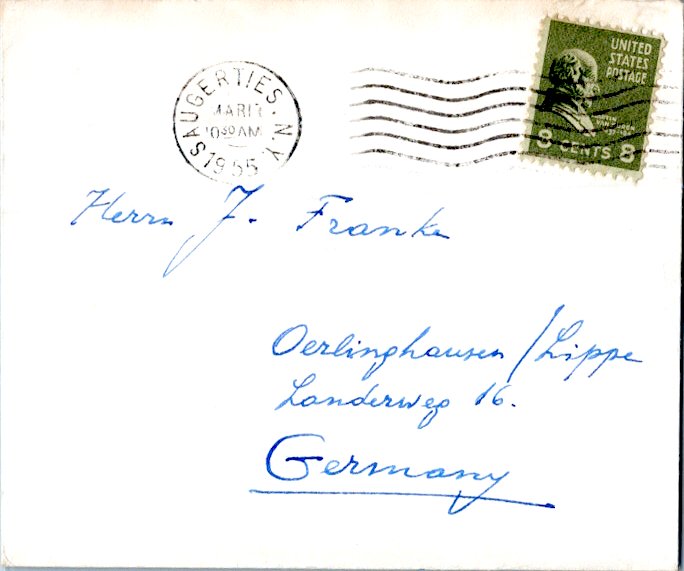 SAUGERTIES. N.Y.
MAR 1
10 30 AM
1955
UNITED
STATES
POSTAGE
8 CENTS 8
Herrn J. Franke
Oerlinghausen / Lippe
Landerweg 16.
Germany